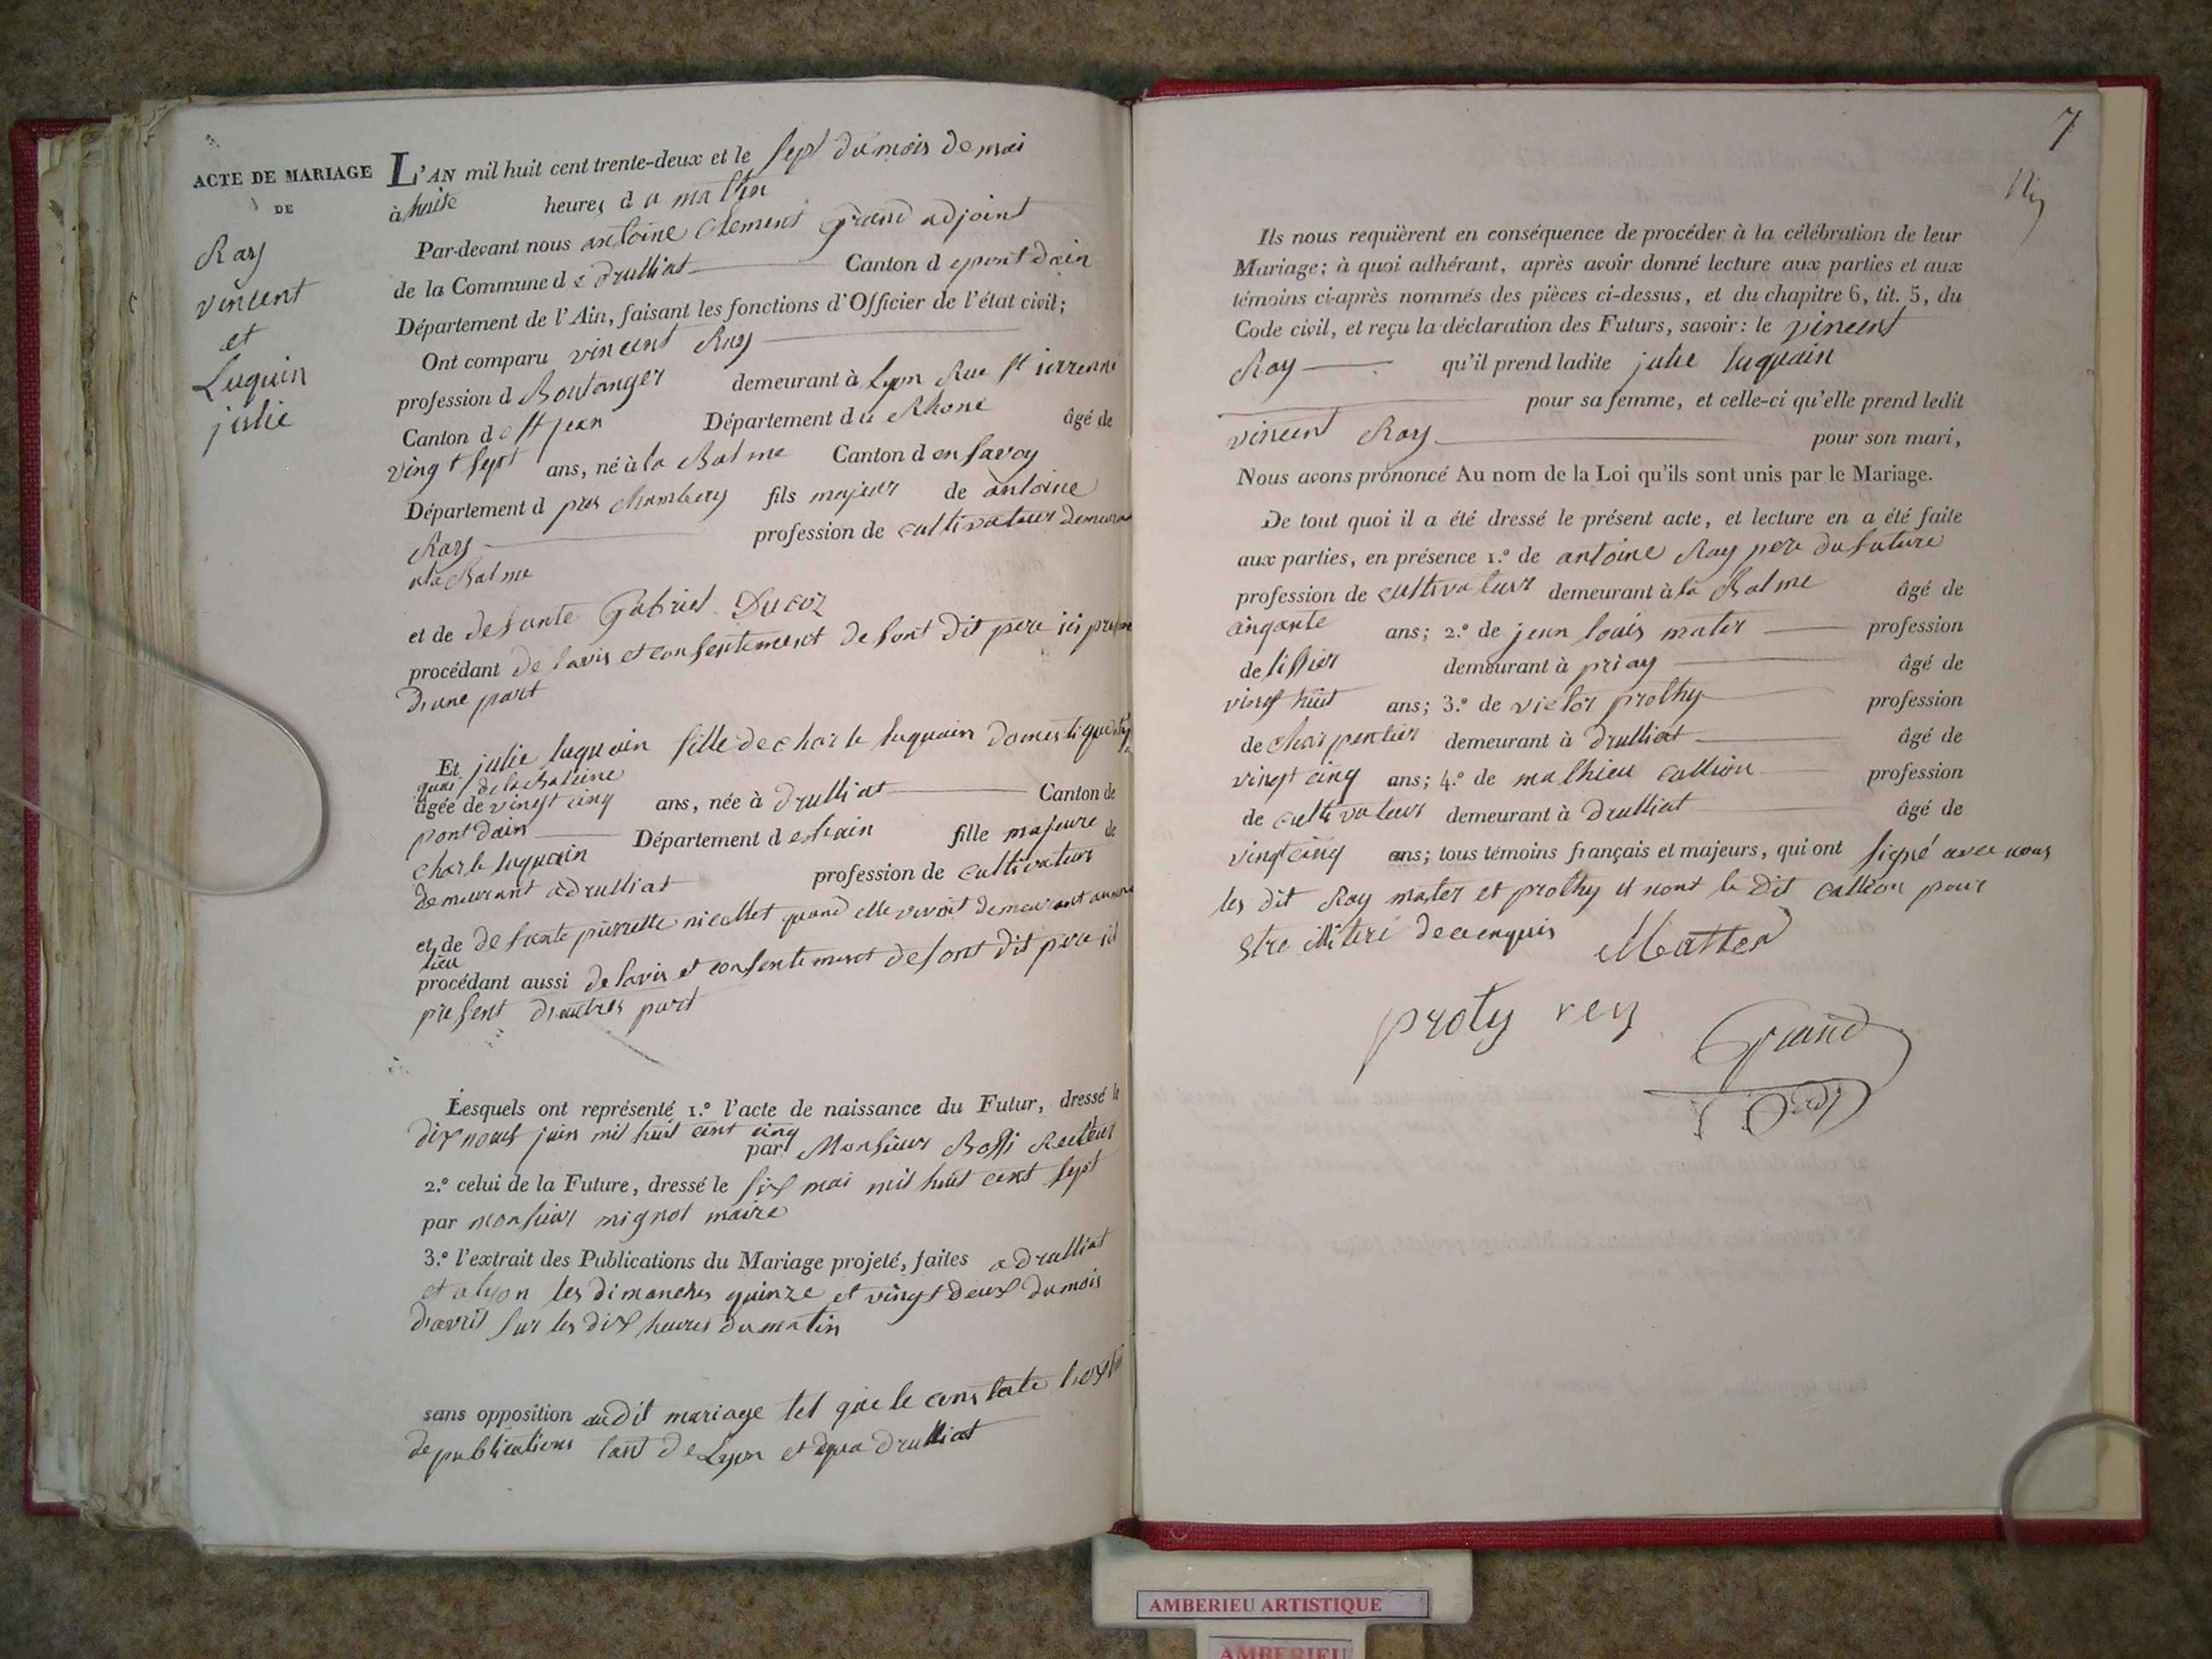 ACTE DE MARIAGE
DE
Ray
vincent
et
Luquin
julie
L'AN mil huit cent trente-deux et le sept du mois de mai
à huite heures d u matin
Par-devant nous antoine Clement Grand adjoint
de la Commune d e druilliat Canton d epont dain
Département de l'Ain, faisant les fonctions d'Officier de l'état civil;
Ont comparu vincent Ray
profession d Boulanger demeurant à Lyon Rue st
Canton d e st jean Département d u Rhone âgé de
vingt sept ans, né à la Balme Canton d en savoy
Département d pres Chambery fils majeur de antoine
Ray profession de cultivateur demeurant
a la Balme
et de defunte Gabriel Ducoz
procédant de lavis et consentement de sont dit pere ici
d'une part
Et julie luquain fille de charle luquain domestique
quai de la Baleine
âgée de vingt cinq ans, née à druilliat Canton de
pont dain Département d e lain fille majeure de
charle luquain
demeurant a druilliat profession de cultivateur
et de defunte pierrette nicollet quand elle vivoit demeurant au meme
lieu
procédant aussi de lavis et consentement de sont dit pere ici
present d'autres part
Lesquels ont représenté 1.º l'acte de naissance du Futur, dressé le
dix neuf juin mil huit cent cinq
par Monsieur Bossi Recteur
2.º celui de la Future, dressé le six mai mil huit cent sept
par monsieur mignot maire
3.º l'extrait des Publications du Mariage projeté, faites a druilliat
et a lyon les dimanches quinze et vingt deux du mois
d'avril sur les dix heures du matin
sans opposition audit mariage tel que le constate
de publications tant de Lyon et qua druilliat
7
Ils nous requièrent en conséquence de procéder à la célébration de leur
Mariage; à quoi adhérant, après avoir donné lecture aux parties et aux
témoins ci-après nommés des pièces ci-dessus, et du chapitre 6, tit. 5, du
Code civil, et reçu la déclaration des Futurs, savoir: le vincent
Ray qu'il prend ladite julie luquain
pour sa femme, et celle-ci qu'elle prend ledit
vincent Ray pour son mari,
Nous avons prononcé Au nom de la Loi qu'ils sont unis par le Mariage.
De tout quoi il a été dressé le présent acte, et lecture en a été faite
aux parties, en présence 1.º de antoine Ray pere du future
profession de cultivateur demeurant à la Balme âgé de
cinqante ans; 2.º de jean louis mater profession
de demeurant à priay âgé de
vingt huit ans; 3.º de victor prothy profession
de charpentier demeurant à druilliat âgé de
vingt cinq ans; 4.º de mathieu callion profession
de cultivateur demeurant à druilliat âgé de
vingt cinq ans; tous témoins français et majeurs, qui ont signé avec nous
les dit Ray mater et prothy et nont le dit callion pour
Matter
proty rey
Grand
adj
AMBERIEU ARTISTIQUE
AMBERIEU